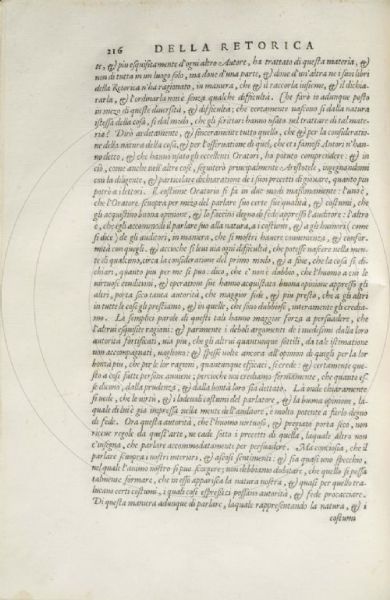 216 DELLA RETORICA
te, & più esquisitamente d'ogni altro Autore, ha trattato di questa materia; &
non di tutta in un luogo solo, ma doue d'una parte, & doue d'un'altra ne i suoi libri
della Retorica n'ha ragionato, in maniera, che & il raccorla insieme, & il dichia-
rarla, & l'ordinarla non è senza qualche difficultà. Che farò io adunque posto
in mezo di queste diuersità, & difficultà; che certamente nascono sì dalla natura
istessa della cosa, sì dal modo, che gli scrittori hanno usato nel trattare di tal mate-
ria? Dirò arditamente, & sinceramente tutto quello, che & per la consideratio-
ne della natura della cosa, & per l'osseruatione di quel, che et i famosi Autori n'han-
no detto, & che hanno usato gli eccellenti Oratori, ho potuto comprendere: & in
ciò, come anche nell'altre cose, seguiterò principalmente Aristotele, ingegnandomi
con la diligente, & particolare dichiaratione de i suoi precetti di giouare, quanto più
potrò a i lettori. Il costume Oratorio si fà in due modi massimamente: l'uno è,
che l'Oratore scuopra per mezo del parlare suo certe sue qualità, & costumi, che
gli acquistino buona opinione, & lo faccino degno di fede appresso l'auditore: l'altro
è, che egli accommodi il parlare suo alla natura, a i costumi, & a gli humori (come
si dice) de gli auditori, in maniera, che si mostri hauere conuenienza, & confor-
mità con quegli. & accioche si leui uia ogni difficultà, che potesse nascere nella men-
te di qualcuno, circa la consideratione del primo modo, & a fine, che la cosa si di-
chiari, quanto più per me si può: dico, che e' non è dubbio, che l'huomo a cui le
uirtuose attioni, & operationi sue hanno acquistata buona opinione appresso gli
altri, porta seco tanta autorità, che maggior fede, & più presto, che a gli altri
in tutte le cose gli prestiamo, & in quelle, che sono dubbiose, interamente gli credia-
mo. La semplice parola di questi tali hanno maggior forza a persuadere, che
l'altrui esquisite ragioni: & parimente i deboli argumenti de i medesimi dalla loro
autorità fortificati, uia più, che gli altrui quantunque sottili, da tale istimatione
non accompagnati, uagliono: & spesse uolte ancora all'opinion di quegli per la lor
bontà più, che per le lor ragioni, quantunque efficaci, si crede: & certamente que-
sto a cose fatte persone auuiene; percioche noi crediamo fermamente, che quanto es-
se dicono, dalla prudenza, & dalla bontà loro sia dettato. Là onde chiaramente
si uede, che le uirtù, & i lodeuoli costumi del parlatore, & la buona opinione, la-
quale di lui è già impressa nella mente dell'auditore, è molto potente a farlo degno
di fede. Ora questa autorità, che l'huomo uirtuoso, & pregiato porta seco, non
riceue regole da quest'arte, ne cade sotto i precetti di quella, laquale altro non
c'insegna, che parlare accommodatamente per persuadere. Ma conciosia, che il
parlare scuopra i nostri interiori, & ascosi sentimenti: & sia quasi uno specchio,
nel quale l'animo nostro si può scorgere; non debbiamo dubitare, che quello si possa
talmente formare, che in esso apparisca la natura nostra, & quasi per quello tra-
lucano certi costumi, i quali così espressi ci possano autorità, & fede procacciare.
Di questa maniera adunque di parlare, laquale rappresentando la natura, & i
costumi